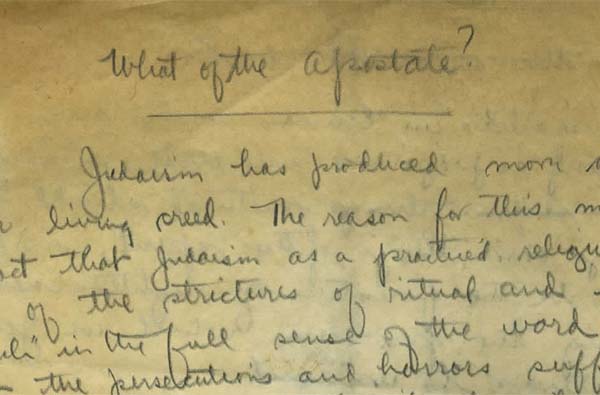 What of the Apostate?
Judaism has produced more
living creed. The reason for this
that Judaism as a practiced
of the strictures of ritual and
in the full sense of the word
the persecutions and horrors